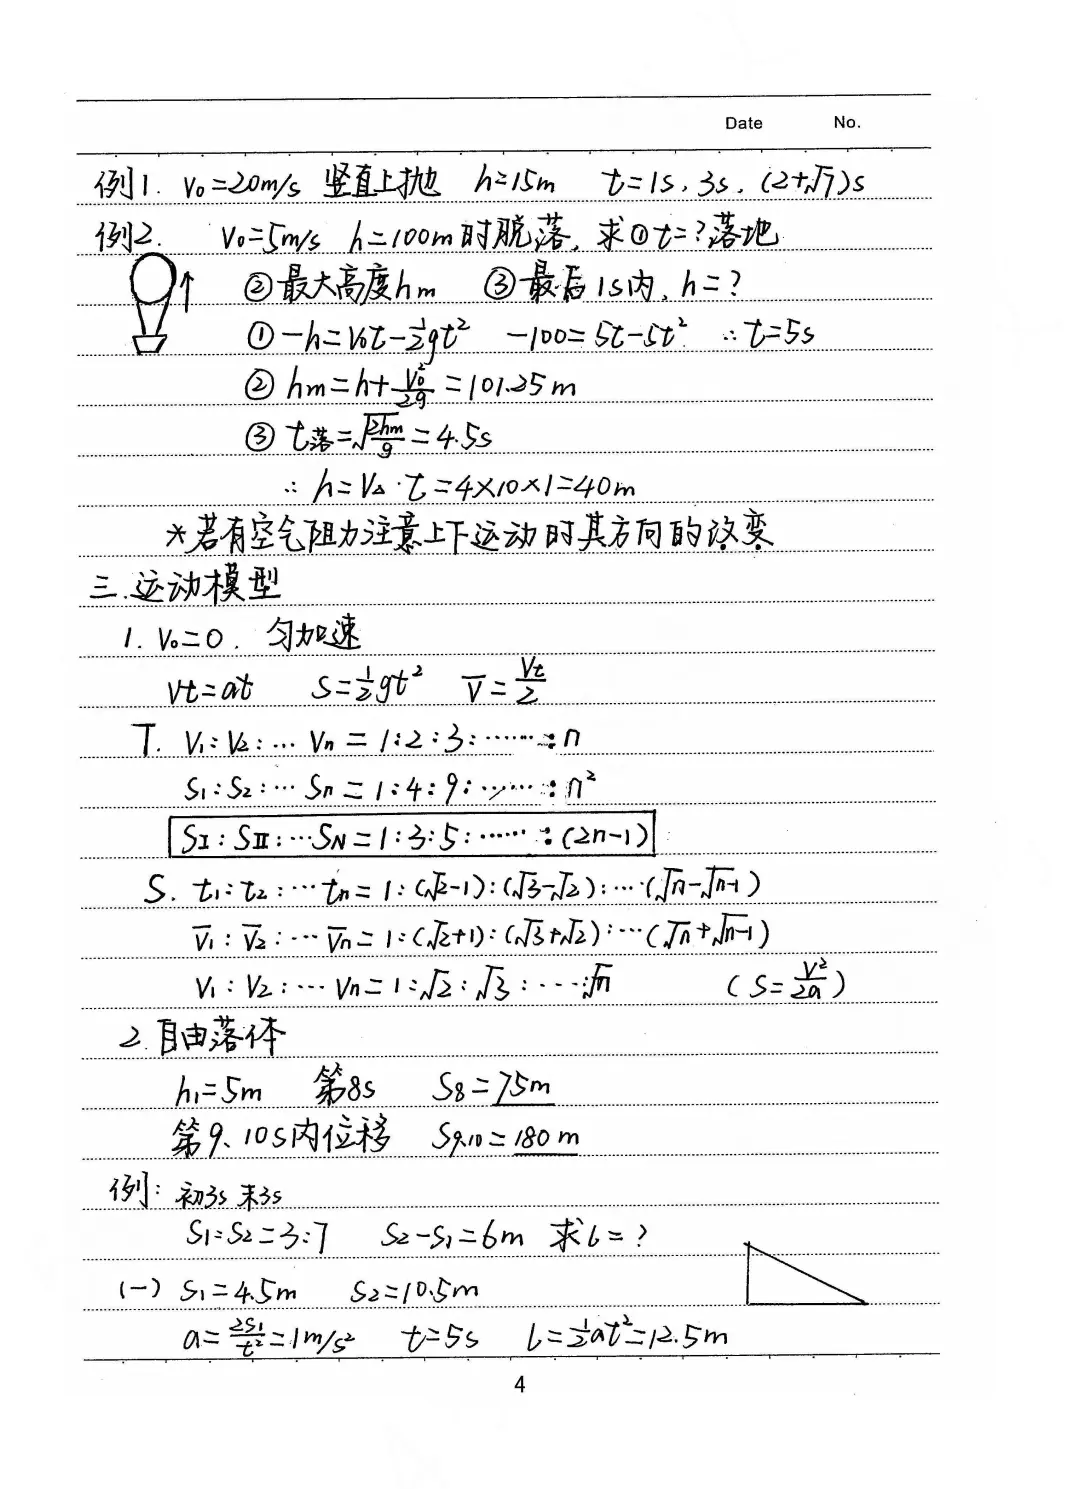 Date No.
例1. V₀=20m/s 竖直上抛 h=15m t=1s, 3s, (2+√7)s
例2. V₀=5m/s h=100m时脱落, 求①t=?落地
②最大高度hm ③最后1s内, h=?
①-h=V₀t-½gt² -100=5t-5t² ∴t=5s
②hm=h+V₀²/2g=101.25m
③t落=√(2hm/g)=4.5s
∴h=V△·t=4×10×1=40m
*若有空气阻力注意上下运动时其方向的改变
三.运动模型
1. V₀=0. 匀加速
Vt=at S=½gt² V̅=Vt/2
T. V₁:V₂:…Vn=1:2:3:……:n
S₁:S₂:…Sn=1:4:9:……:n²
SⅠ:SⅡ:…SN=1:3:5:……:(2n-1)
S. t₁:t₂:…tn=1:(√2-1):(√3-√2):…(√n-√n-1)
V̅₁:V̅₂:…V̅n=1:(√2+1):(√3+√2):…(√n+√n-1)
V₁:V₂:…Vn=1:√2:√3:…:√n (S=V²/2a)
2.自由落体
h₁=5m 第8s S₈=75m
第9、10s内位移 S₉,₁₀=180m
例: 初3s 末3s
S₁:S₂=3:7 S₂-S₁=6m 求l=?
(一) S₁=4.5m S₂=10.5m
a=2S₁/t²=1m/s² t=5s l=½at²=12.5m
4